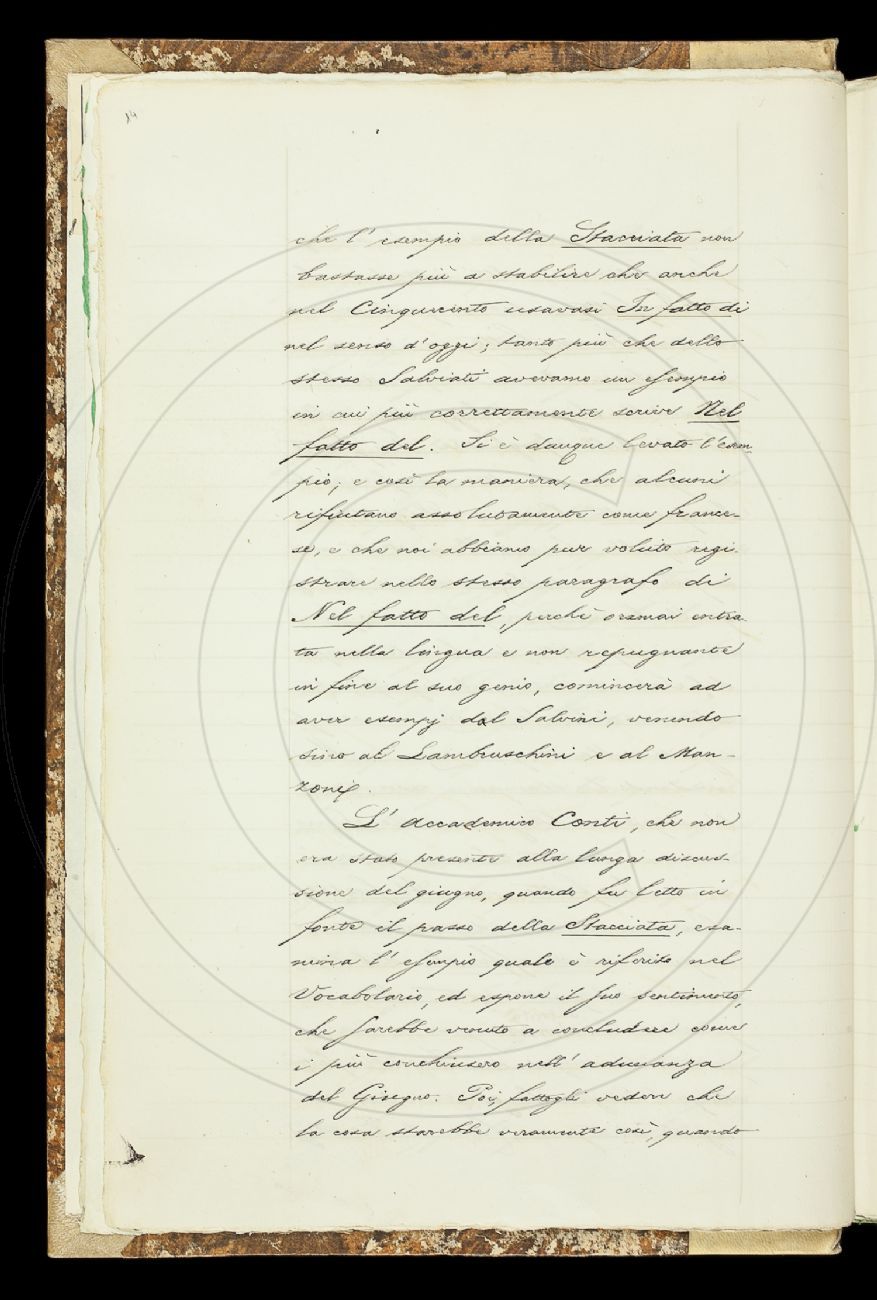 14
che l'esempio della Stacciata non
bastasse più a stabilire che anche
nel Cinquecento usavasi In fatto di
nel senso d'oggi; tanto più che dello
stesso Salviati avevamo un esempio
in cui più correttamente scrive Nel
fatto del. Si è dunque levato l'esem-
pio; e così la maniera, che alcuni
rifiutano assolutamente come france-
se, e che noi abbiamo pur voluto regi-
strare nello stesso paragrafo di
Nel fatto del, perchè oramai entra-
ta nella lingua e non repugnante
in fine al suo genio, comincerà ad
aver esempj dal Salvini, venendo
sino al Lambruschini e al Man-
zoni.
L'Accademico Conti, che non
era stato presente alla lunga discus-
sione del giugno, quando fu letto in
fonte il passo della Stacciata, esa-
mina l'esempio quale è riferito nel
Vocabolario, ed espone il suo sentimento,
che sarebbe venuto a concludere come
i più conchiusero nell'adunanza
del Giugno. Poi, fattogli vedere che
la cosa starebbe veramente così, quando